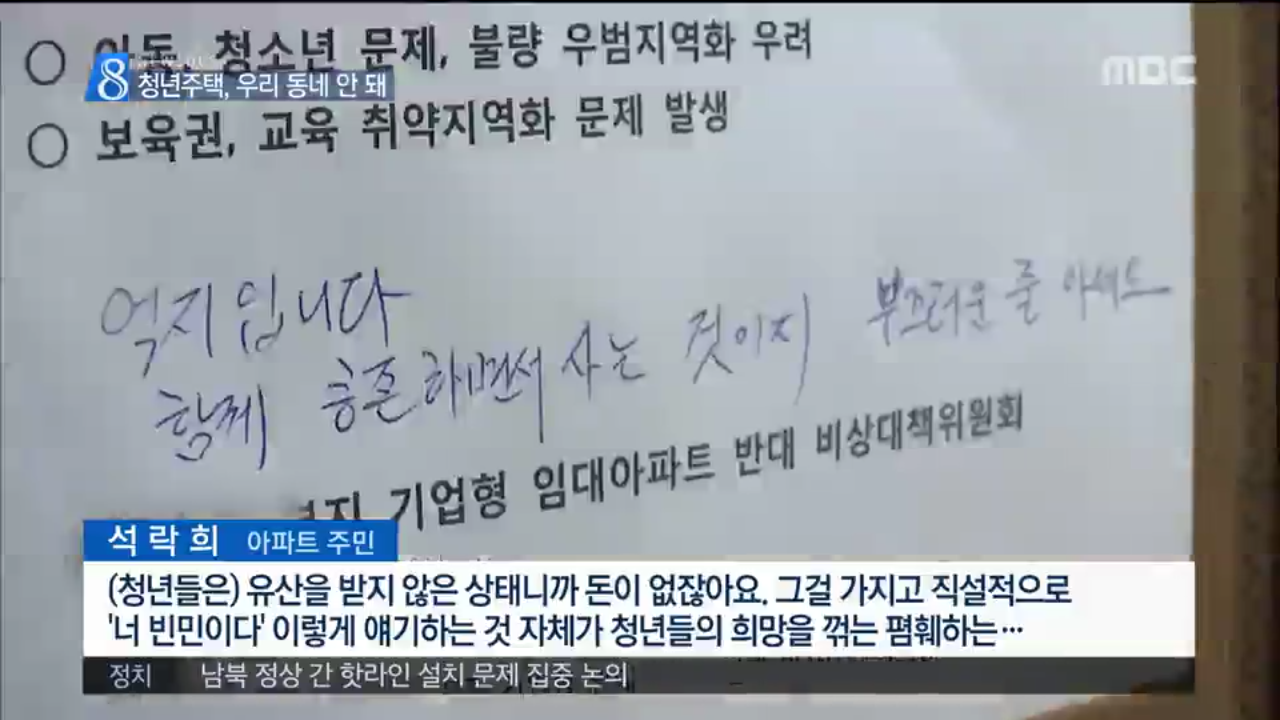 ○ 아동, 청소년 문제, 불량 우범지역화 우려
MBC
8 청년주택, 우리 동네 안 돼
○ 보육권, 교육 취약지역화 문제 발생
억지입니다
함께 층존하면서 사는 것이지 부끄러운 줄 아세요
기업형 임대아파트 반대 비상대책위원회
석락희 아파트 주민
(청년들은) 유산을 받지 않은 상태니까 돈이 없잖아요. 그걸 가지고 직설적으로
'너 빈민이다' 이렇게 얘기하는 것 자체가 청년들의 희망을 꺾는 폄훼하는…
정치 남북 정상 간 핫라인 설치 문제 집중 논의